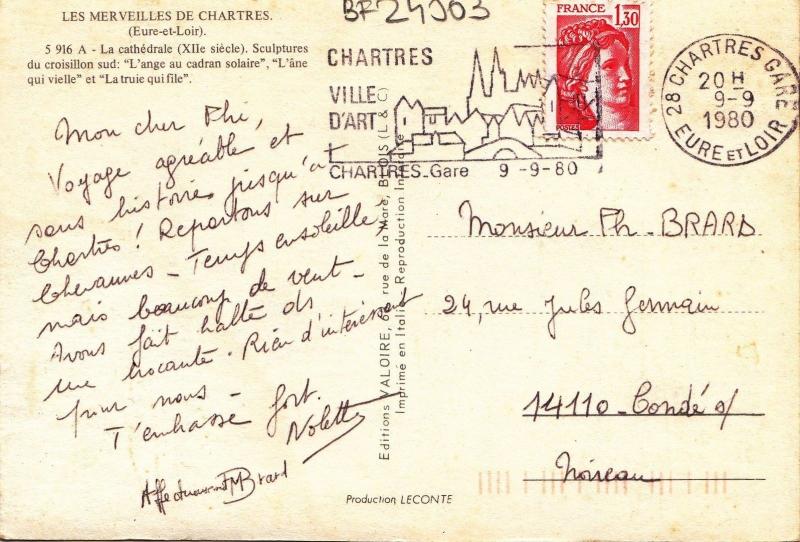 LES MERVEILLES DE CHARTRES.
(Eure-et-Loir).
5 916 A - La cathédrale (XIIe siècle). Sculptures
du croisillon sud: "L'ange au cadran solaire", "L'âne
qui vielle" et "La truie qui file".
Mon cher Phi,
Voyage agréable et
sans histoires jusqu'à
Chartres! Repartons sur
Chevannes - Temps ensoleillé,
mais beaucoup de vent -
Avons fait halte ds
une brocante. Rien d'intéressant
pour nous -
T'embrasse fort.
Nolette
Affectueusement M Brard
Editions VALOIRE, rue de la Mare, BLOIS (L & C)
Imprimé en Italie Reproduction Interdite
Production LECONTE
BF 24J03
CHARTRES
VILLE
D'ART
CHARTRES_Gare 9 -9-80
FRANCE
1,30
POSTES
28 CHARTRES GARE
20 H
9-9
1980
EURE ET LOIR
Monsieur Ph. BRARD
24, rue Jules Germain
14110_Condé s/
Noireau